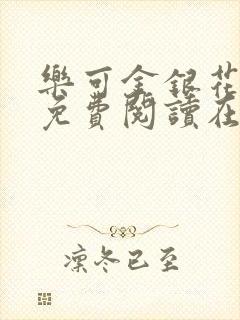 樂可金銀花
免費閱讀在
凜冬已至